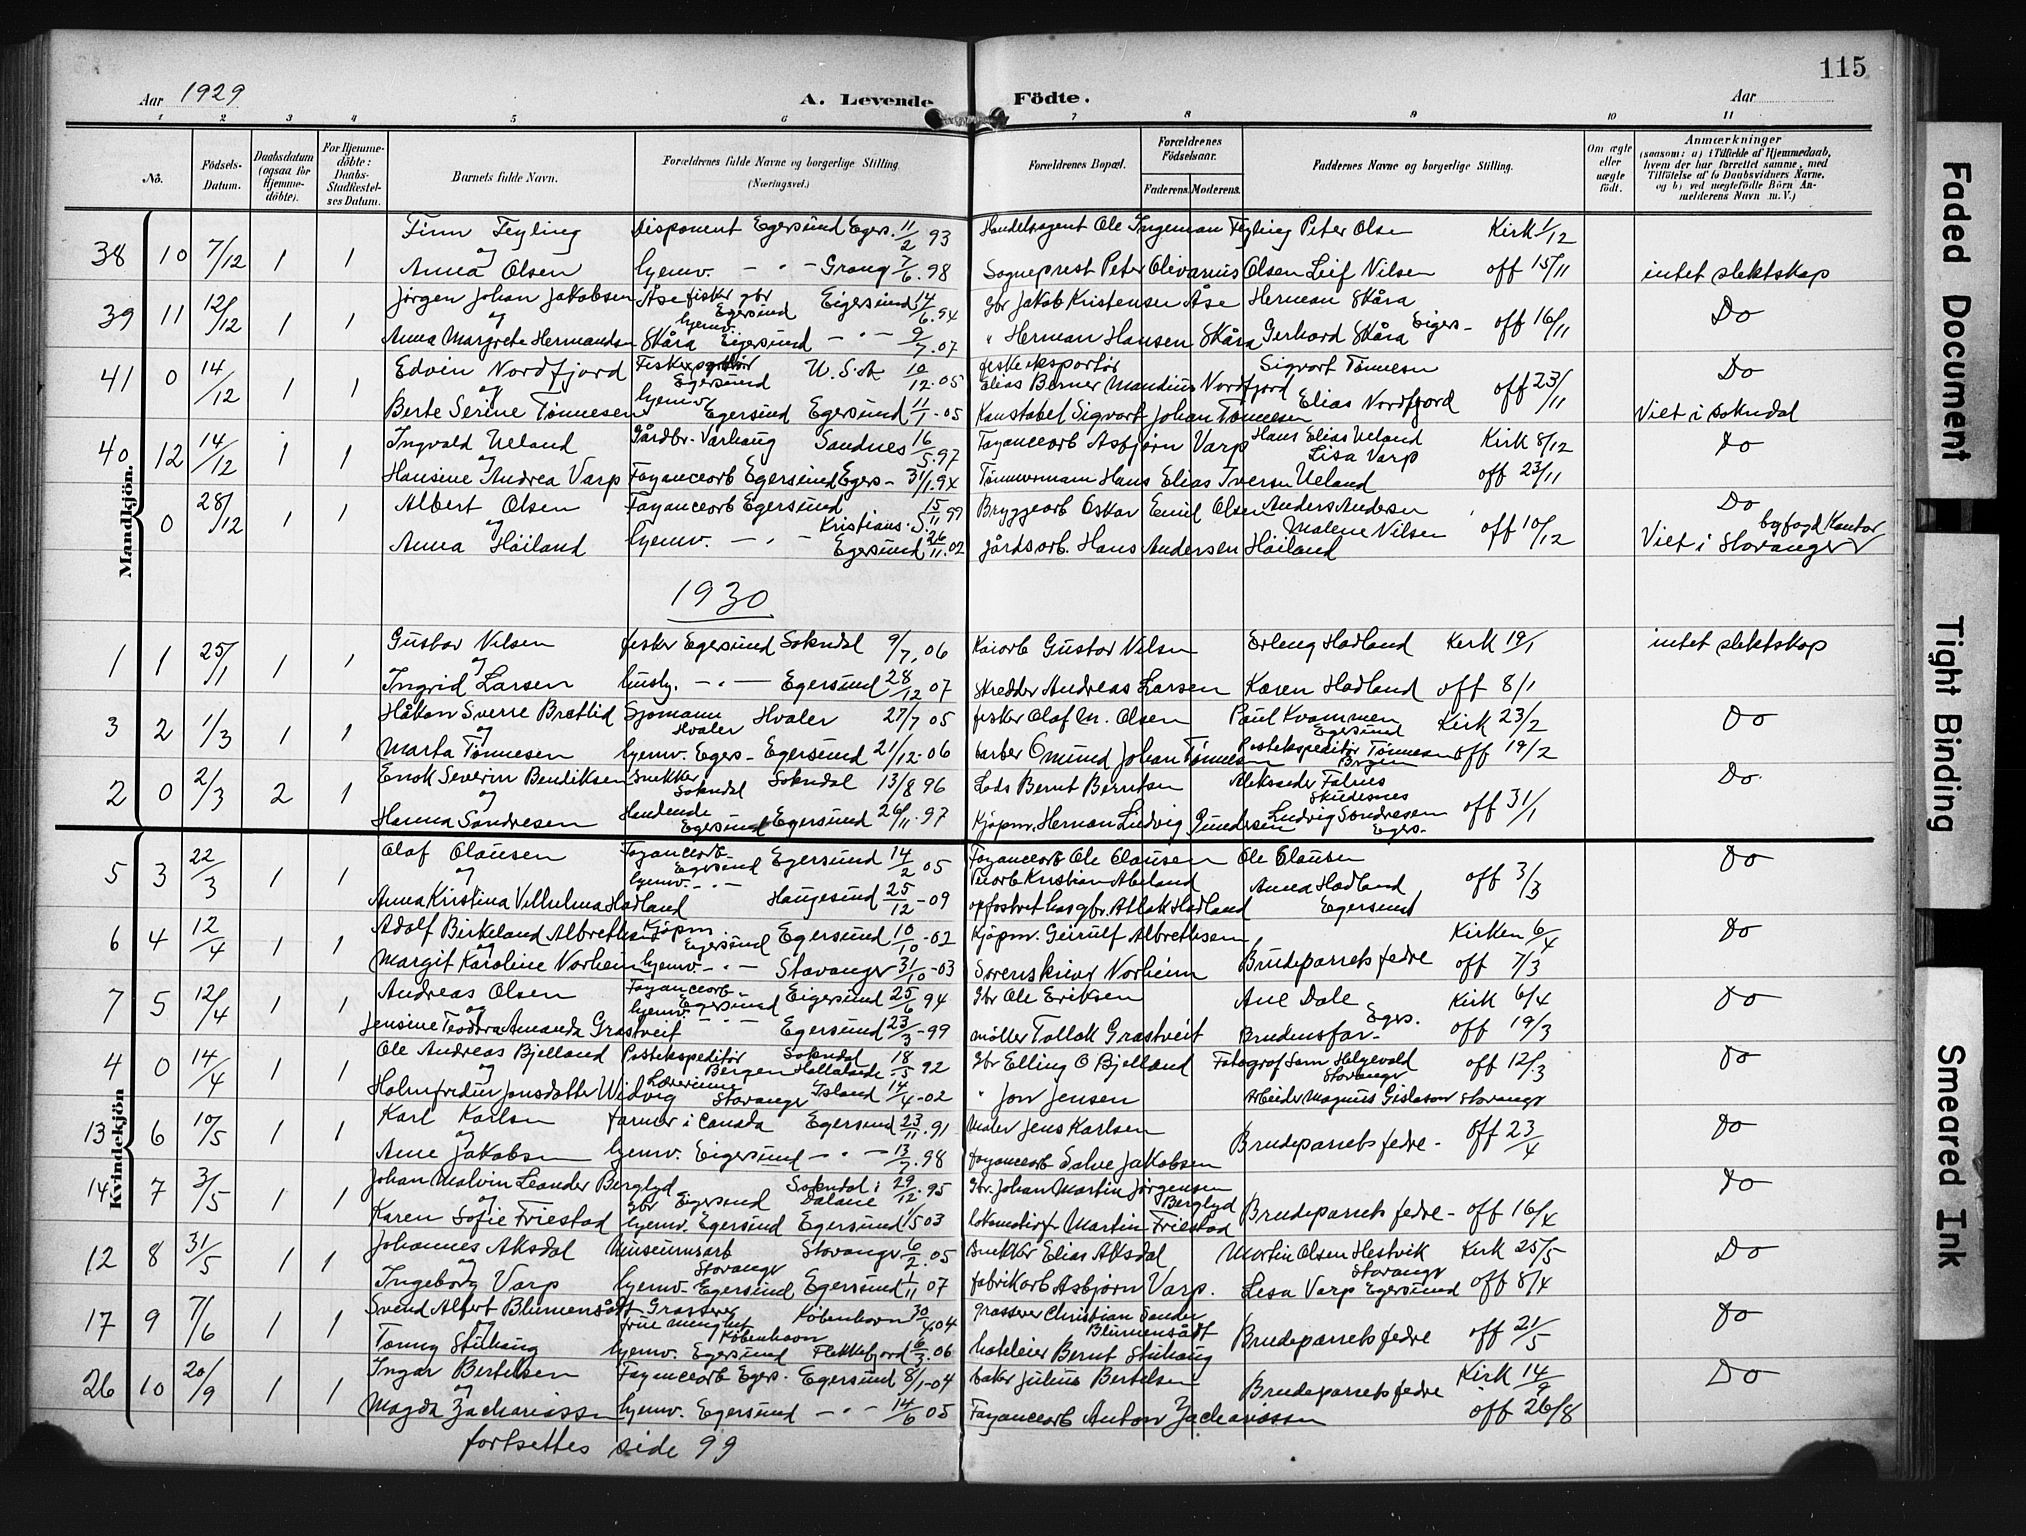 115
Aar 1929
A. Levende Födte.
Aar
1 2 3 4 5 6 7 8 9 10 11
No.
Födsels-Datum.
Daabsdatum (ogsaa for Hjemme-döbte).
For Hjemme-döbte: Daabs-Stadfæstel-ses Datum.
Barnets fulde Navn.
Forældrenes fulde Navne og borgerlige Stilling. (Næringsvei.)
Forældrenes Bopæl.
Forældrenes Födselsaar.
Faderens. Moderens.
Faddernes Navne og borgerlige Stilling.
Om ægte eller uægte födt.
Anmærkninger
(saasom: a) i Tilfælde af Hjemmedaab, hvem der har forrettet samme, med Tilföielse af to Daabsvidners Navne, og b) ved uægtefödte Börn An-melderens Navn m. V.)
Mandkjön.
Kvindekjön
38 10 7/12 1 1 Finn Feyling Disponent Egersund Egers. 11/2 93 Handelsagent Ole Ingeman Feyling Peter Olsen Kirk 1/12
og
Anna Olsen hjemv. - " - Grong 7/6. 98 Sogneprest Peter Olivarius Olsen Leif Nilsen off 15/11 intet slektskap
39 11 12/12 1 1 Jørgen Johan Jakobsen Åse fisker gbr Egersund Eigersund 14/6. 94 Gbr Jakob Kristensen Åse Herman Skåra
og
Anna Margrete Hermandsen Skåra hjemv. Eigersund - " - 9/7. 07 " Herman Hansen Skåra Gerhard Skåra Eigers- off 16/11 Do
41 0 14/12 1 1 Edvin Nordfjord Fiskeeksportør Egersund U.S.A 10/12. 05 fiskeeksportør Elias Berner Mandius Nordfjord Sigvart Tønnesen Do
og
Berte Serine Tønnesen hjemv Egersund Egersund 11/1 - 05 Konstabel Sigvart Johan Tønnesen Elias Nordfjord off 23/11 Viet i Sokndal
40 12 14/12 1 1 Ingvald Ueland Gårdbr. Varhaug Sandnes 16/5. 97 Fayancearb Asbjørn Varp Hans Elias Ueland Lisa Varp Kirk 8/12 Do
og
Hansine Andrea Varp Fayancearb Egersund Egers - 31/1 94 Tømmermann Hans Elias Iversen Ueland off 23/11
0 28/12 1 1 Albert Olsen Fayancearb Egersund Kristians. S. 15/11 99 Bryggearb Oskar Emil Olsen Anders Andersen Do
og
Anna Høiland hjemv. - " - Egersund 26/11. 02 gårdsarb. Hans Andersen Høiland Malene Nilsen off 10/12 Viet i Stavanger byfogd Kontor
1930
1 1 25/1 1 1 Gustav Nilsen fisker Egersund Sokndal 9/7. 06 Kaiarb Gustav Nilsen Erling Hadland Kirk 19/1 intet slektskap
og
Ingrid Larsen hush. - " - Egersund 28/12 07 skredder Andreas Larsen Karen Hadland off 8/1
3 2 1/3 1 1 Håkon Sverre Brattlid Sjømann Hvaler Hvaler 27/7 05 fisker Olaf M. Olsen Paul Kvammen Egersund Kirk 23/2 Do
og
Marta Tønnesen hjemv. Egers - Egersund 21/12. 06 barber Omund Johan Tønnesen Postekspeditør Tønnesen Bergen off 19/2
2 0 2/3 2 1 Enok Severin Bendiksen Snekker Sokndal Sokndal 13/8 96 Lods Bernt Berntsen Aleksander Falnes Skudesnes Do.
og
Hanna Sandresen Handlende Egersund Egersund 26/11. 97 Kjøpm. Herman Ludvig Gundersen Ludvig Sandresen Egers. off 31/1
5 3 22/3 1 1 Olaf Olausen Fayancearb - Egersund Egersund 14/2 05 Fayancearb Ole Olausen Ole Olausen Do
og
Anna Kristina Vilhelmina Hadland hjemv. - " - Haugesund 25/12 - 09 Kristian Abeland opfostret hos gbr. Atlak Hadland Anna Hadland Egersund off 3/3
6 4 12/4 1 1 Adolf Birkeland Albrethsen Kjøpm. Egersund Egersund 10/10 - 02 Kjøpm. Geirulf Albrethsen Kirken 6/4 Do
og
Margit Karoline Norheim hjemv. - " - Stavanger 31/10 - 03 Sorenskriver Norheim Brudeparrets fedre off 7/3
7 5 12/4 1 1 Andreas Olsen Fayancearb - Egersund Eigersund 25/6 94 Gbr Ole Eriksen Ane Dale Egers. Kirk 6/4 Do
og
Jensine Teodora Amanda Grastveit hjemv. - " - Egersund 23/3 - 99 møller Tollak Grastveit Brudensfar - off 19/3
4 0 14/4 1 1 Ole Andreas Bjelland Postekspeditør Bergen Sokndal 18/5 92 Gbr Elling O Bjelland Fotograf Sam Helgevold Stavanger off 12/3 Do
og
Holmfridur Jonsdatter Widvig Lærerinne Stavanger Island 14/4 - 02 " Jon Jensen Arbeider Magnus Gislason Stavanger
13 6 10/5 1 1 Karl Karlsen farmer i Canada Egersund 23/11. 91 Maler Jens Karlsen Do
og
Anne Jakobsen hjemv. Eigersund - " - 13/7. 98 fayancearb Salve Jakobsen Brudeparrets fedre - off 23/4
14 7 3/5 1 1 Johan Malvin Leander Berglyd gbr Eigersund Sokndal i Dalane 29/12. 95 Gbr. Johan Martin Jørgensen Berglyd Do
og
Karen Sofie Friestad hjemv. Egersund Egersund 1/5 03 lokomotivf. Martin Friestad Brudeparrets fedre - off 16/4
12 8 31/5 1 1 Johannes Aksdal Museumsarb Stavanger Stavanger 6/2. 05 Snekker Elias Aksdal Martin Olsen Hestvik Stavanger Kirk 25/5 Do
og
Ingeborg Varp hjemv. Egersund Egersund 1/11 07 fabrikarb Asbjørn Varp. Lisa Varp Egersund off 8/4
17 9 7/6 1 1 Svend Alfert Blumensådt Grosserer København København 30/4. 04 grosserer Christian Sander Blumensådt Do
og
Tonny Stuhaug hjemv. Egersund Flekkefjord 6/3. 06 hoteleier Bernt Stuhaug Brudeparrets fedre off 21/5
26 10 20/9 1 1 Ingar Bertelsen Fayancearb Egers. Egersund 8/1 - 04 baker Julius Bertelsen Kirk 14/9 Do
og
Magda Zachariassen hjemv. Egersund - " - 14/6 05 Fayancearb Anton Zachariassen Brudeparrets fedre off 26/8
fortsettes side 99
Faded Document
Tight Binding
Smeared Ink